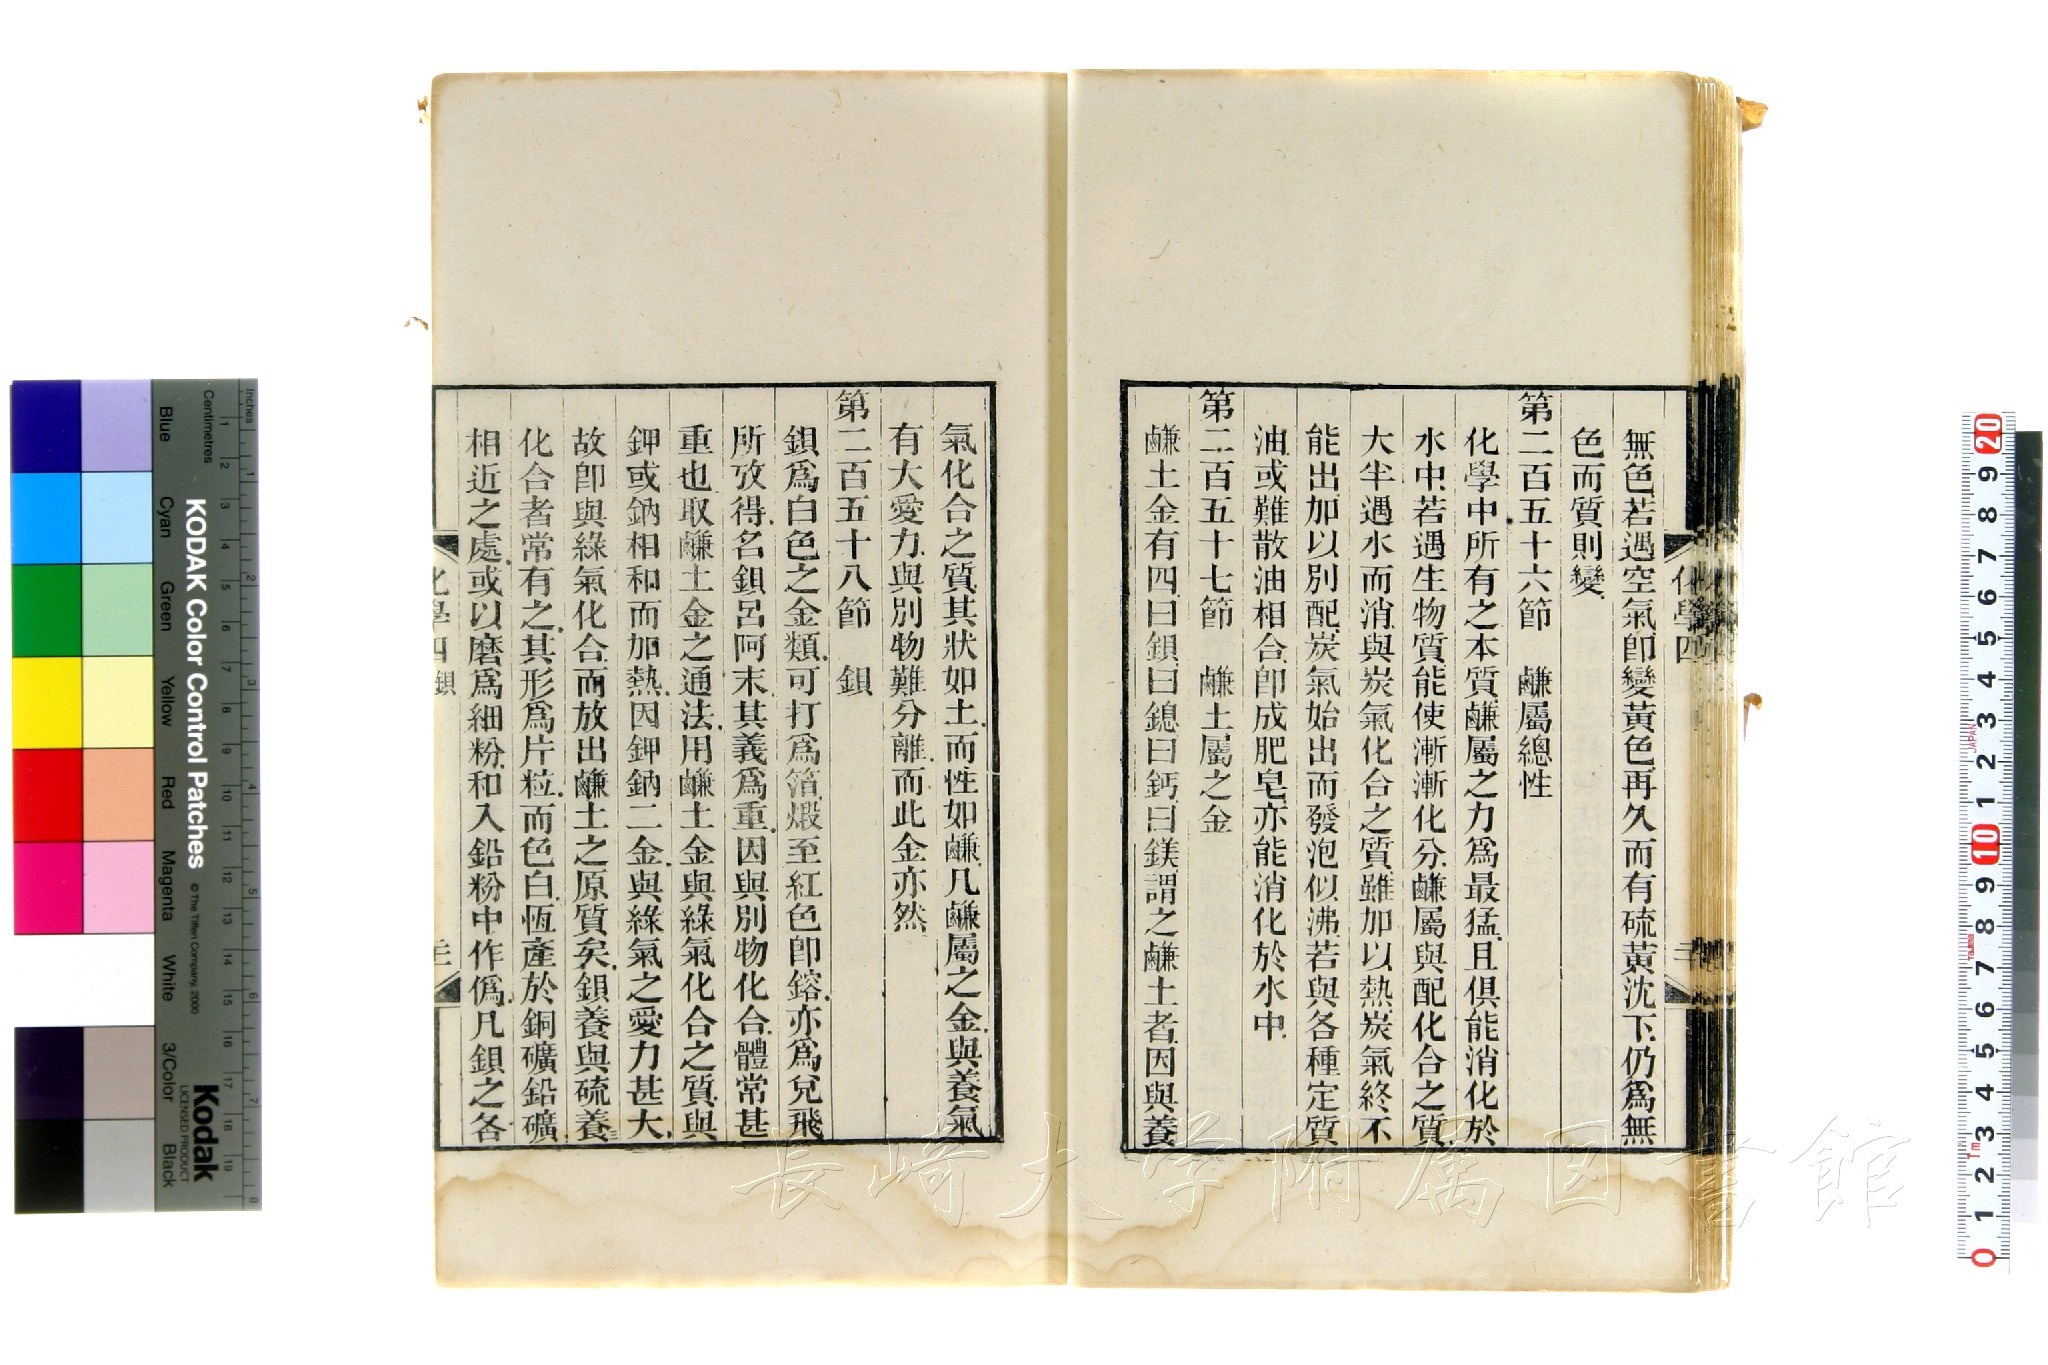 無色若遇空氣卽變黃色再久而有硫黃沈下仍爲無
色而質則變
第二百五十六節　鹻屬總性
化學中所有之本質鹻屬之力爲最猛且俱能消化於
水中若遇生物質能使漸漸化分鹻屬與配化合之質
大半遇水而消與炭氣化合之質雖加以熱炭氣終不
能出加以別配炭氣始出而發泡似沸若與各種定質
油或難散油相合卽成肥皂亦能消化於水中
第二百五十七節　鹻土屬之金
鹻土金有四曰鋇曰鎴曰鈣曰鎂謂之鹻土者因與養
氣化合之質其狀如土而性如鹻凡鹻屬之金與養氣
有大愛力與別物難分離而此金亦然
第二百五十八節　鋇
鋇爲白色之金類可打爲箔煅至紅色卽鎔亦爲兌飛
所攷得名鋇呂阿末其義爲重因與別物化合體常甚
重也取鹻土金之通法用鹻土金與綠氣化合之質與
鉀或鈉相和而加熱因鉀鈉二金與綠氣之愛力甚大
故卽與綠氣化合而放出鹻土之原質矣鋇養與硫養
化合者常有之其形爲片粒而色白恆產於銅礦鉛礦
相近之處或以磨爲細粉和入鉛粉中作僞凡鋇之各
化學四
化學四 鋇
長崎大学附属図書館
KODAK Color Control Patches
© The Tiffen Company, 2000
Kodak
LICENSED PRODUCT
Inches
Centimetres
Blue
Cyan
Green
Yellow
Red
Magenta
White
3/Color
Black
1 2 3 4 5 6 7 8
1 2 3 4 5 6 7 8 9 10 11 12 13 14 15 16 17 18 19
0 1 2 3 4 5 6 7 8 9 10 1 2 3 4 5 6 7 8 9 20
JAPAN